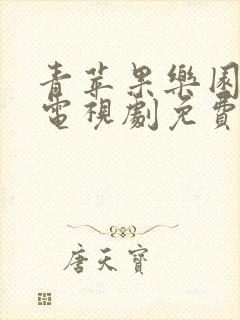 青苹果樂園
電視劇免費
唐天寶